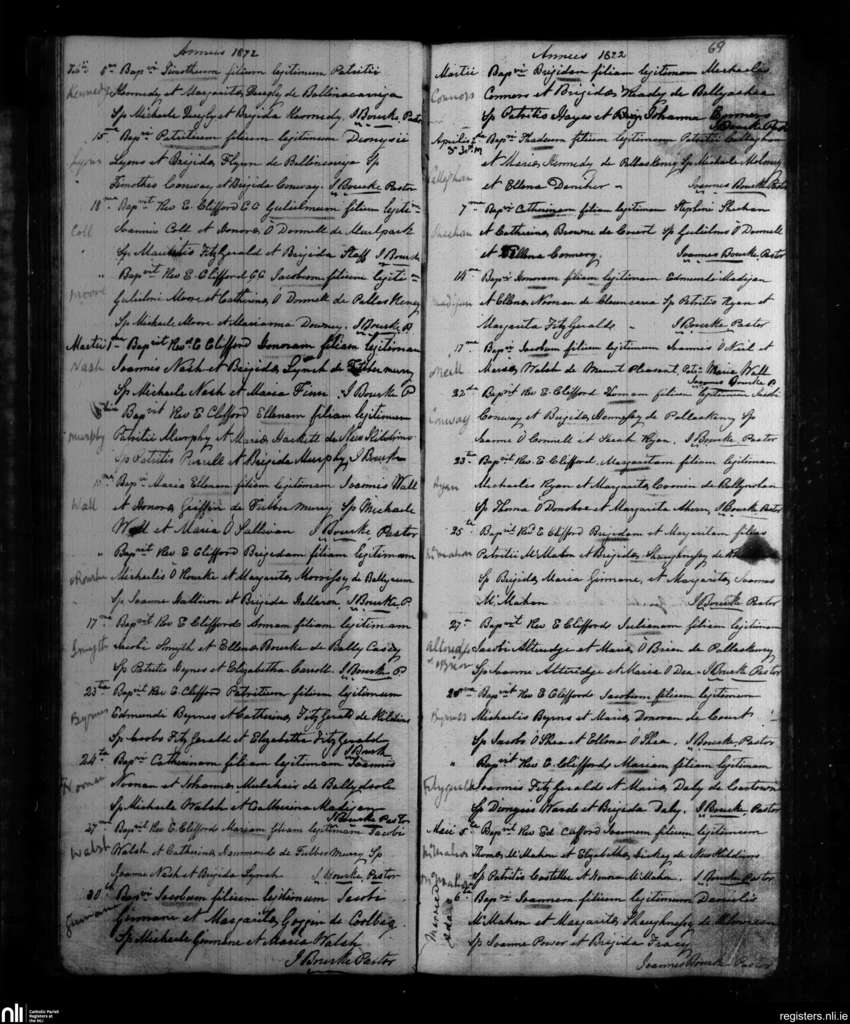 Annus 1872
Feb 8 Bapvi Timotheum filium legitimum Patritii
Kennedy Kennedy et Margarita de
Sp Michaele et Brigida Kennedy, J Bourke, Pastor
15 Bapvi Patritium filium legitimum Dionysii
Lyons Lyons et Brigida Flynn de Sp
Timotheo Conway, et Brigida Conway. J Bourke Pastor
18 Bapvit Rev E Clifford CC Gulielmum filium legiti=
Coll Joannis Coll et Honora O Donnell de Meelpark
Sp Mauritio FitzGerald et Brigida J Bourke
" Bapvit Rev E Clifford CC Jacobum filium legiti=
Moore Gulielmi Moore et Catherina O Donnell de Pallaskenry
Sp Michaele Moore et Marianna Downey. J Bourke, P.
Martii 1 Bapvit Revd E Clifford Honoram filiam legitimam
Nash Joannis Nash et Brigida Lynch de
Sp Michaele Nash et Maria Finn. J Bourke P
Bapvit Rev E Clifford Ellenam filiam legitimam
Murphy Patritii Murphy et Maria Hackett de New Kildimo
Sp Patritio et Brigida Murphy, J Bourke
Bapvi Maria Ellenam filiam legitimam Joannis Wall
Wall et Honora Griffin de Tubber Murry Sp Michaele
Wall et Maria O Sullivan J Bourke, Pastor
" Bapvit Rev E Clifford Brigidam filiam legitimam
ORourke Michaelis O Rourke et Margarita de
Sp Joanne Halloran et Brigida Halloran, J Bourke P.
17 Bapvit Rev E Clifford Annam filiam legitimam
Smyth Jacobi Smyth et Ellena Bourke de Bally Casey
Sp Patritio Lynes et Elizabetha Carroll. J Bourke P
23 Bapvit Rev E Clifford Patritium filium legitimum
Byrnes Edmundi Byrnes et Catherina FitzGerald de Kildimo
Sp Jacobo FitzGerald et Elizabetha FitzGerald
J Bourke
24 Bapvi Catherinam filiam legitimam Joannis
Noonan Noonan et Johanna de
Sp Michaele Walsh et Catherina Madigan
J Bourke Pastor
27 Bapvit Rev E Clifford Mariam filiam legitimam Jacobi
Walsh Walsh et Catherina Hammonds de Tubber Murry Sp
Joanne Nash et Brigida Lynch J Bourke, Pastor
30 Bapvi Jacobum filium legitimum Jacobi
Ginnane Ginnane et Margarita Goggin de Coolbeg
Sp Michaele Ginnane et Maria Walsh
J Bourke Pastor
69
Annus 1872
Martii Bapvi Brigidam filiam legitimam Michaelis
Connors Connors et Brigida de
Sp Patritio Hayes et Johanna Connors
J Bourke Pastor
Aprilis Bapvi Thadeum filium legitimum Patritii Callaghan
Callaghan et Maria Kennedy de Pallaskenry Sp Michaele
et Ellena Danaher Joannes Bourke Pastor
7 Bapvi Catherinam filiam legitimam Stephani Sheehan
Sheehan et Catherina Browne de Court Sp Gulielmo O Donnell
et Ellena Joannes Bourke, Pastor
14 Bapvi Honoram filiam legitimam Edmundi Madigan
Madigan et Ellena Noonan de Sp Patritio Ryan et
Margarita FitzGerald J Bourke Pastor
17 Bapvi Jacobum filium legitimum Joannis O Neil et
Neill Maria Walsh de Mount Pleasant Maria Wall
Joannes Bourke P.
22 Bapvit Rev E Clifford filium legitimum Jacobi
Conway Conway et Brigida Hennessy de Pallaskenry Sp
Joanne O Connell et Sarah Ryan. J Bourke, Pastor
23 Bapvit Rev. E Clifford Margaritam filiam legitimam
Ryan Michaelis Ryan et Margarita Cronin de
Sp Thoma O Donohoe et Margarita J Bourke Pastor
25 Bapvit Revd E Clifford Brigidam et Margaritam filias
McMahon Patritii McMahon et Brigida Shaughnessy de
Sp Brigida, Maria Ginnane, et Margarita, Joannes
McMahon J Bourke Pastor
27 Bapvit Rev E Clifford Julianam filiam legitimam
Jacobi Alteridge et Maria O Brien de Pallaskenry
O Brien Sp Joanne Alteridge et Maria O Dea J Bourke Pastor
28 Bapvit Rev E Clifford Jacobum filium legitimum
Byrnes Michaelis Byrns et Maria Donovan de Court
Sp Jacobo O Shea et Ellena O Shea. J Bourke, Pastor
" Bapvit Rev E. Clifford Mariam filiam legitimam
Fitzgerald Joannis FitzGerald et Maria Daly de
Sp Dionysio Ward et Brigida Daly. J Bourke, Pastor
Maii 5 Bapvit Rev Ed Clifford Joannem filium legitimum
McMahon Thoma McMahon et Elizabetha Hickey de New Kildimo
Sp Patritio Costelloe et Honora McMahon. J Bourke Pastor
McMahon 6 Bapvi Joannem filium legitimum Danielis
McMahon et Margarita Shaughnessy de
Sp Joanne Power et Brigida Tracy
Joannes Bourke Pastor
nli Catholic Parish
Registers at
the NLI
registers.nli.ie